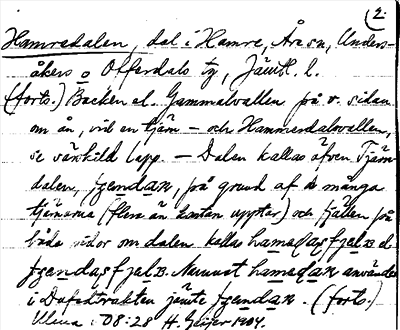 (2.
Hamredalen, dal i Hamre, Åre sn, Unders-
åkers o Offerdals tg, Jämtl. l.
(forts.) Backen el. Gammalvallen på v. sidan
om ån, vid en tjärn – och Hammardalsvallen,
se särskild lapp. – Dalen kallas äfven Tjärn-
dalen, på grund af de många
tjärnarna (flera än kartan upptar) och fjällen på
båda sidor om dalen kalla
Namnet användes
i Dufedstrakten jämte (forts.)
Ullssa : 08:28 H. Geijer 1904.